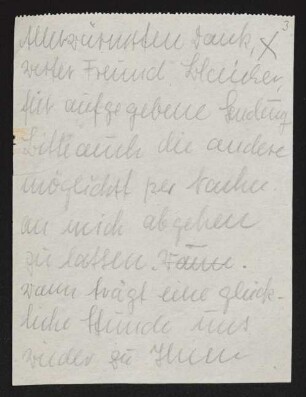 3
Allerwärmsten Dank, x
werter Freund Bleicher,
für aufgegebene Sendung
Bitte auch die andere
möglichst per Nachn.
an mich abgehen
zu lassen.
Wann trägt eine glück-
liche Stunde uns
wieder zu Ihnen